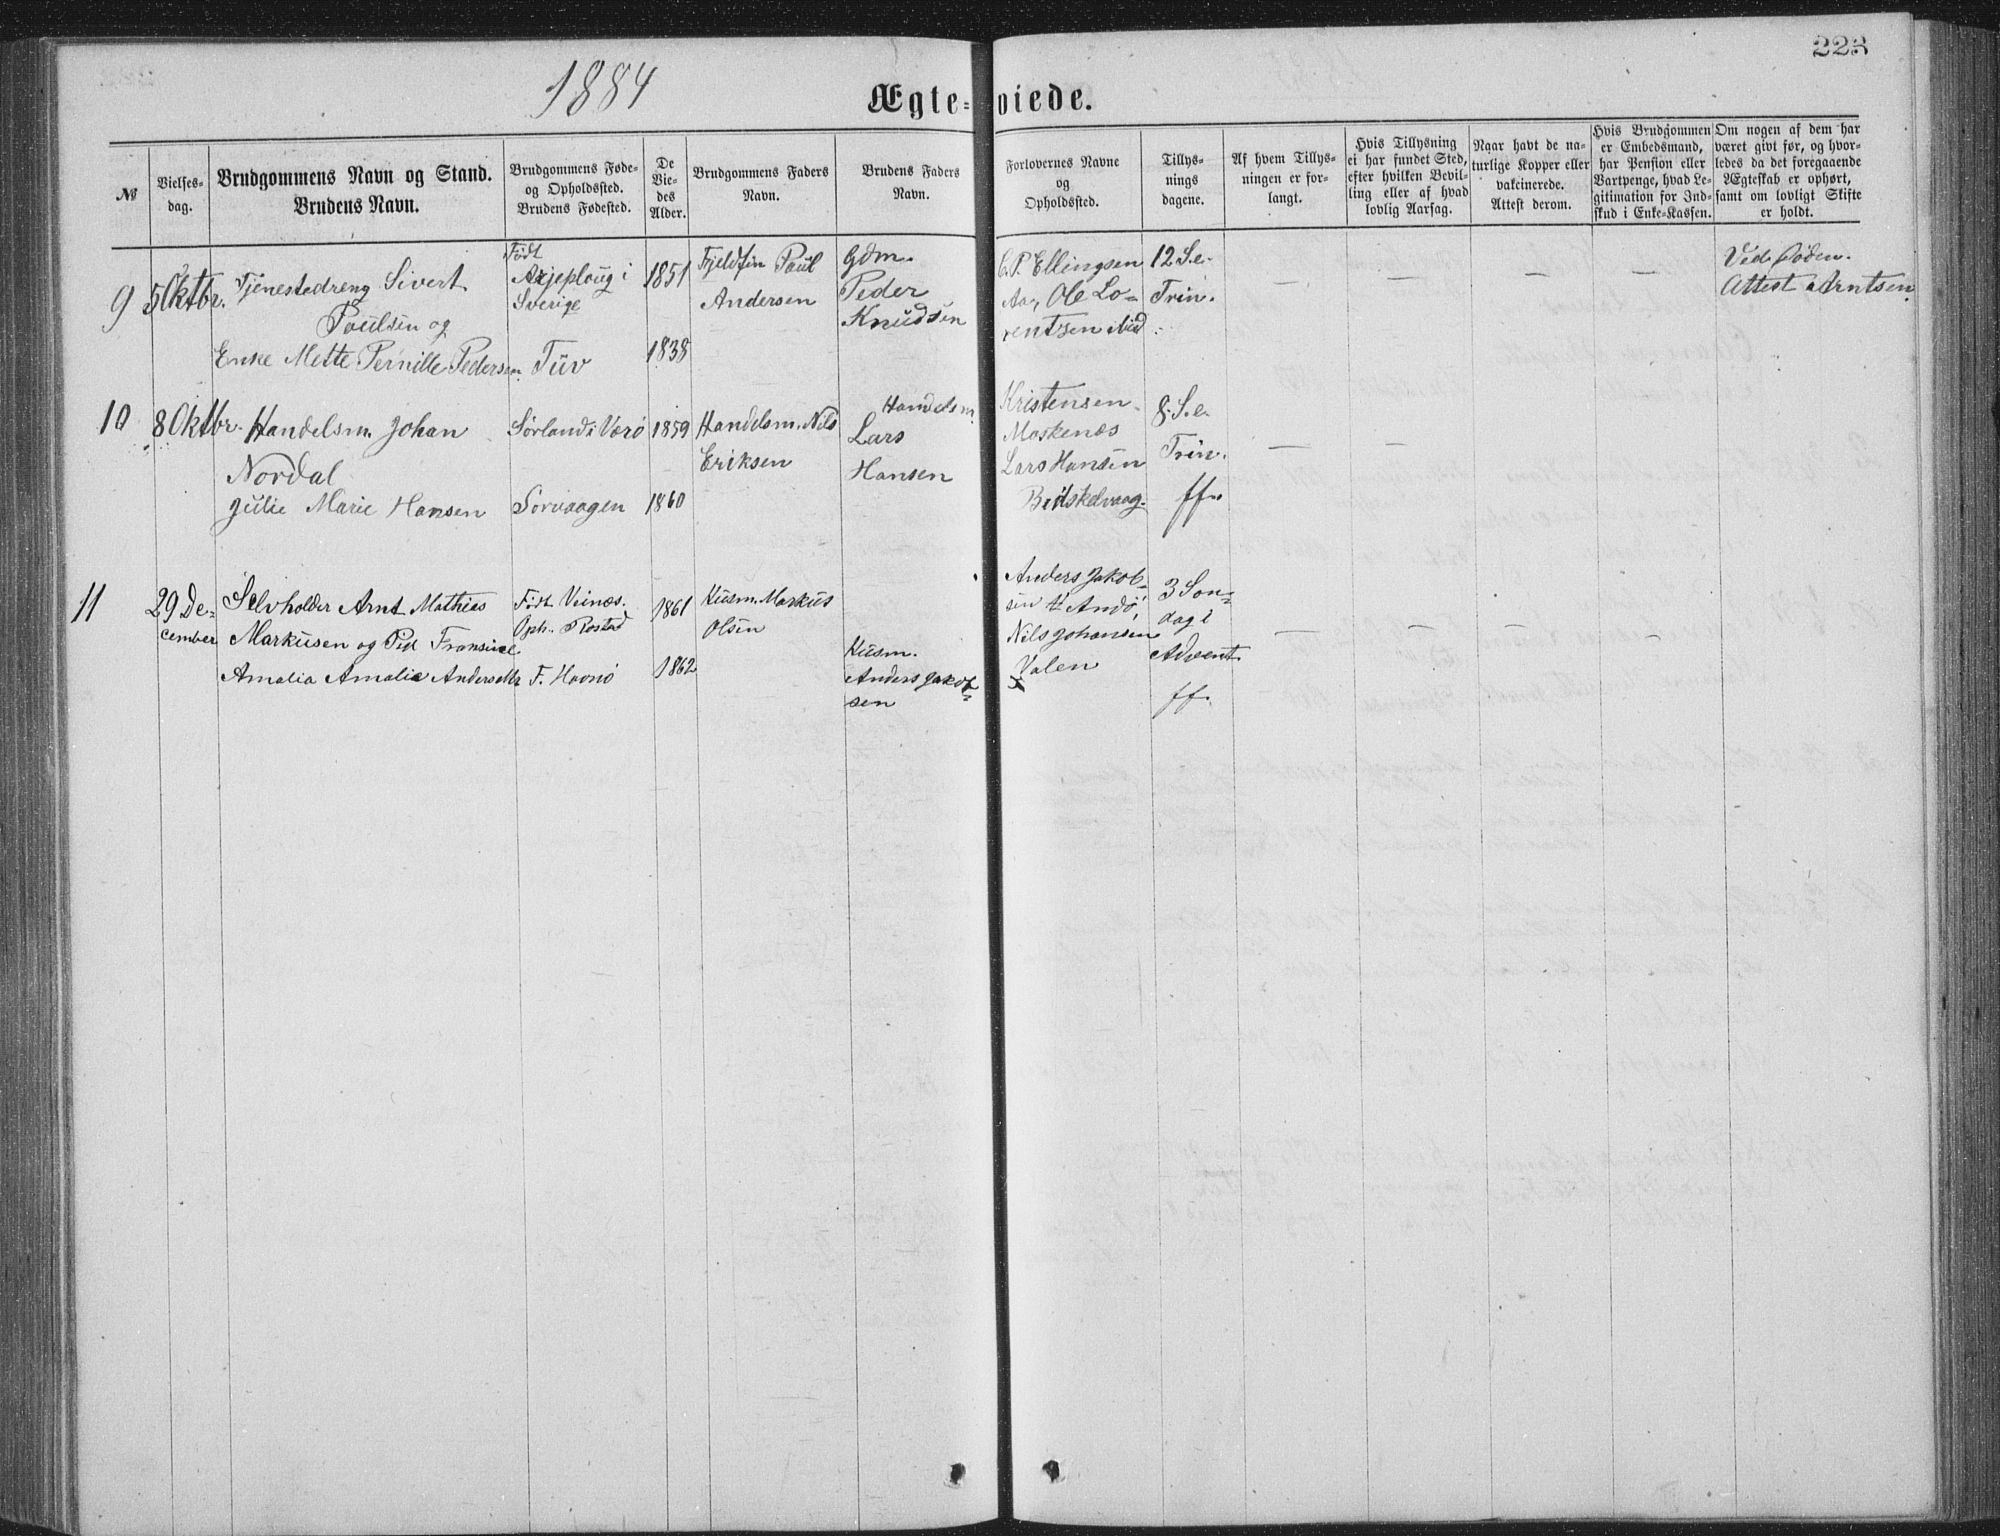 1884
223
Ægte-
viede.
№
Vielses-
dag.
Brudgommens Navn og Stand.
Brudens Navn.
Brudgommens Føde-
og Opholdssted.
Brudens Fødested.
De
Vie-
des
Alder.
Brudgommens Faders
Navn.
Brudens Faders
Navn.
Forlovernes Navne
og
Opholdssted.
Tillys-
nings
dagene.
Af hvem Tillys-
ningen er for-
langt.
Hvis Tillysning
ei har fundet Sted,
efter hvilken Bevil-
ling eller af hvad
lovlig Aarsag.
Naar havt de na-
turlige Kopper eller
vakcinerede.
Attest derom.
Hvis Brudgommen
er Embedsmand,
har Pension eller
Vartpenge, hvad Le-
gitimation for Ind-
skud i Enke-Kassen.
Om nogen af dem har
været givt før, og hvor-
ledes da det foregaaende
Ægteskab er ophørt,
samt om lovligt Skifte
er holdt.
9
5 Oktbr.
Tjenestedreng Sivert
Poulsen og
Enke Mette Pernille Pedersen
Født
Arjeploug i
Sverige
Tuv
1851
1838
Fjeldfin Poul
Andersen
Gdm.
Peder
Knudsen
C. P. Ellingsen
Ole Lo-
rentsen
12 S. e.
Trin.
—
—
—
—
Ved Døden.
Attest Arntsen.
10
8 Oktbr.
Handelsm. Johan
Nordal
Julie Marie Hansen
Sørland i Værø
Sørvaagen
1859
1860
Handelsm. Nils
Eriksen
Handelsm.
Lars
Hansen
Kristensen
Moskenæs
Lars Hansen
8. S. e.
Trin.
ff.
—
—
11
29 De-
cember
Selvholder Arnt Mathias
Markusen og Pige Fransine
Amalia Amalie Andersdtr
Født Veinæs.
Oph. Rostad
F. Havnø
1861
1862
Husm. Markus
Olsen
Husm.
Anders Jakob-
sen
Anders Jakob-
sen Andø,
Nils Johansen
Valen
3 Søn-
dag i
Advent
ff.
—
—
—
—